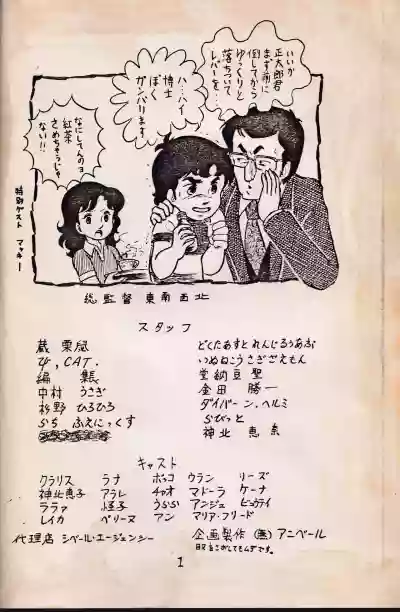 いいか
正太郎君
まず前に
倒してから
ゆっくりと
落ちついて
レバーを…
ハ…ハイ
博士
ぼく
ガンバリます
なにしてんのョ
紅茶
さめちゃうじゃ
ない!!
特別ゲスト マッキー
総監督 東南西北
スタッフ
蔵 栗鼠
ぴ,CAT.
編 集
中村 うさぎ
杉野 ひろひろ
らち ふぇにっくす
どくたあすとれんじろうあお
いぬねこうさぎざえもん
堂納豆 聖
金田 勝一
ダイバーン.ヘルミ
らびっと
神北 恵奈
キャスト
クラリス ラナ ボッコ ウラン リーズ
神北恵子 アラレ チャオ マドーラ ケーナ
ララァ 煌子 うらら アンジュ ビュウティ
レイカ ペリーヌ アン マリア・フリード
代理店 シベール・エージェンシー
企画製作 (無) アニベール
1